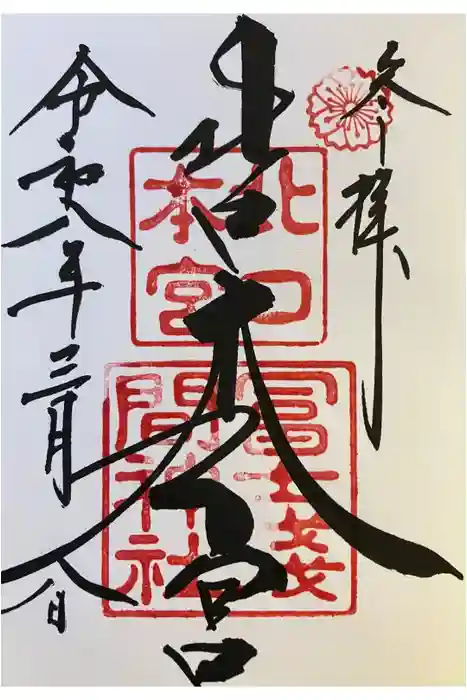 参拝
北口本宮
北口
本宮
冨士淺
間神社
令和八年三月八日